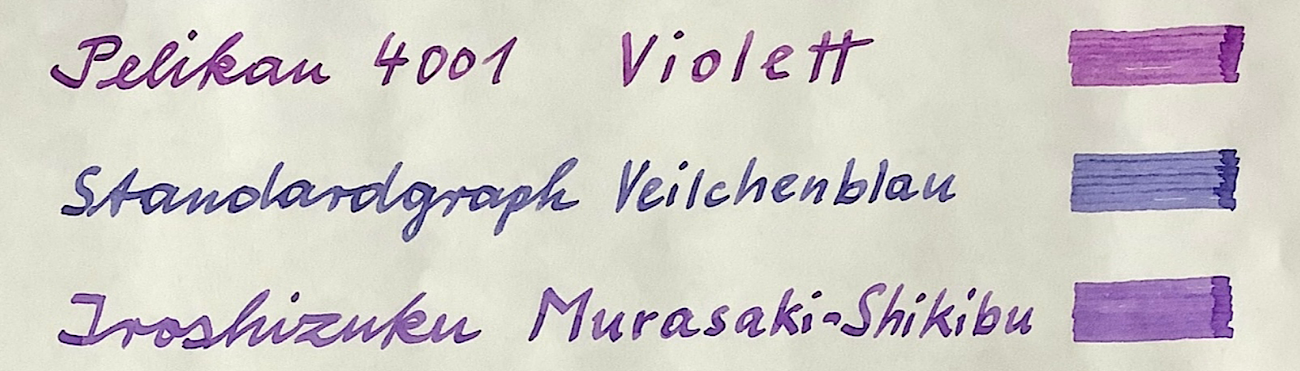 Pelikan 4001 Violett
Standardgraph Veilchenblau
Iroshizuku Murasaki-Shikibu